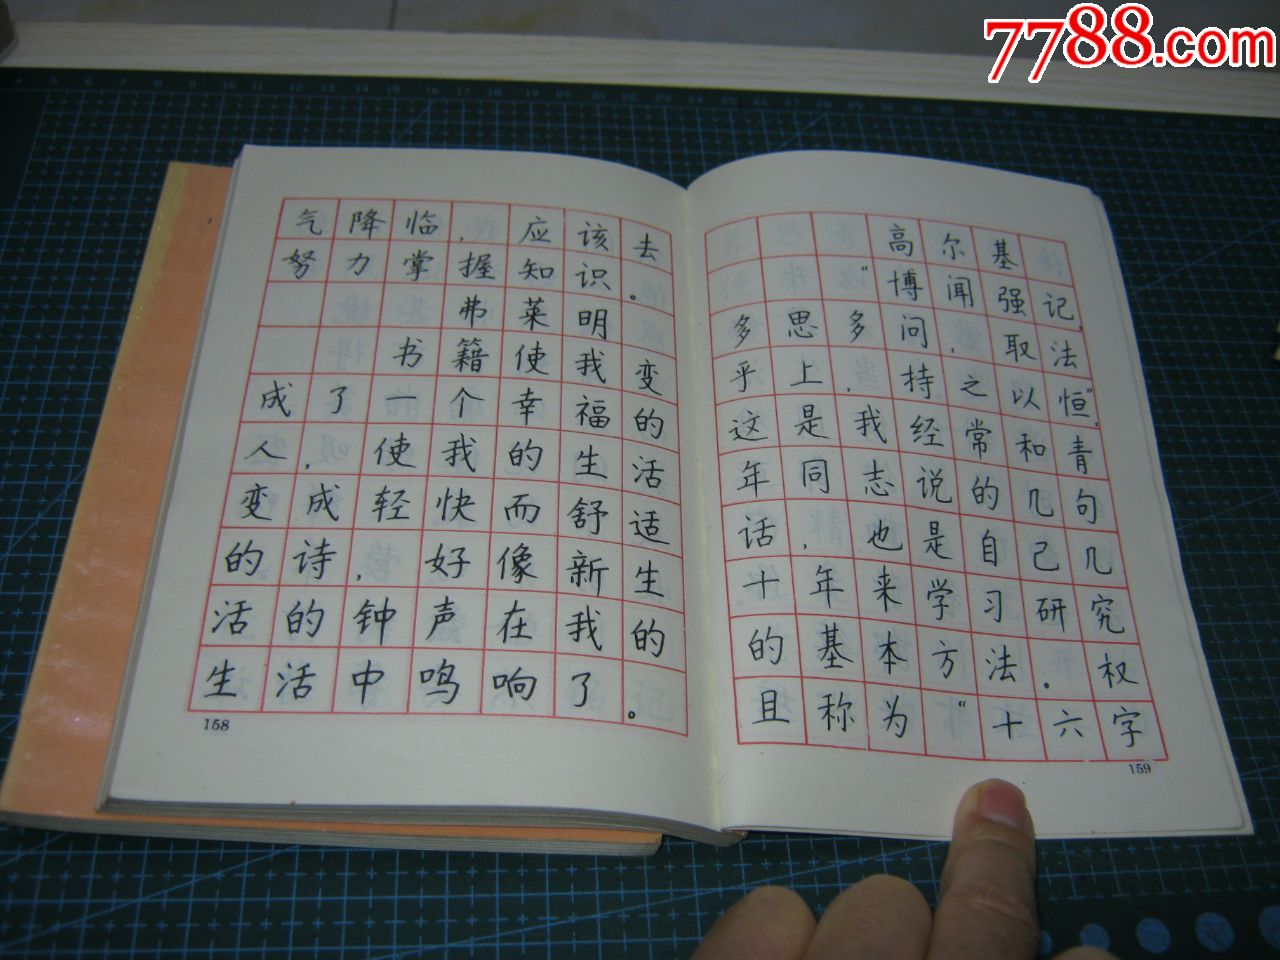 7788.com
气降临,应该去
努力掌握知识。
弗莱明
书籍使我变
成了一个幸福的
人,使我的生活
变成轻快而舒适
的诗,好像新生
活的钟声在我的
生活中鸣响了。
158
高尔基
“博闻强记,
多思多问,取法
乎上,持之以恒”,
这是我经常和青
年同志说的几句
话,也是自己几
十年来学习研究
的基本方法。权
且称为“十六字
159